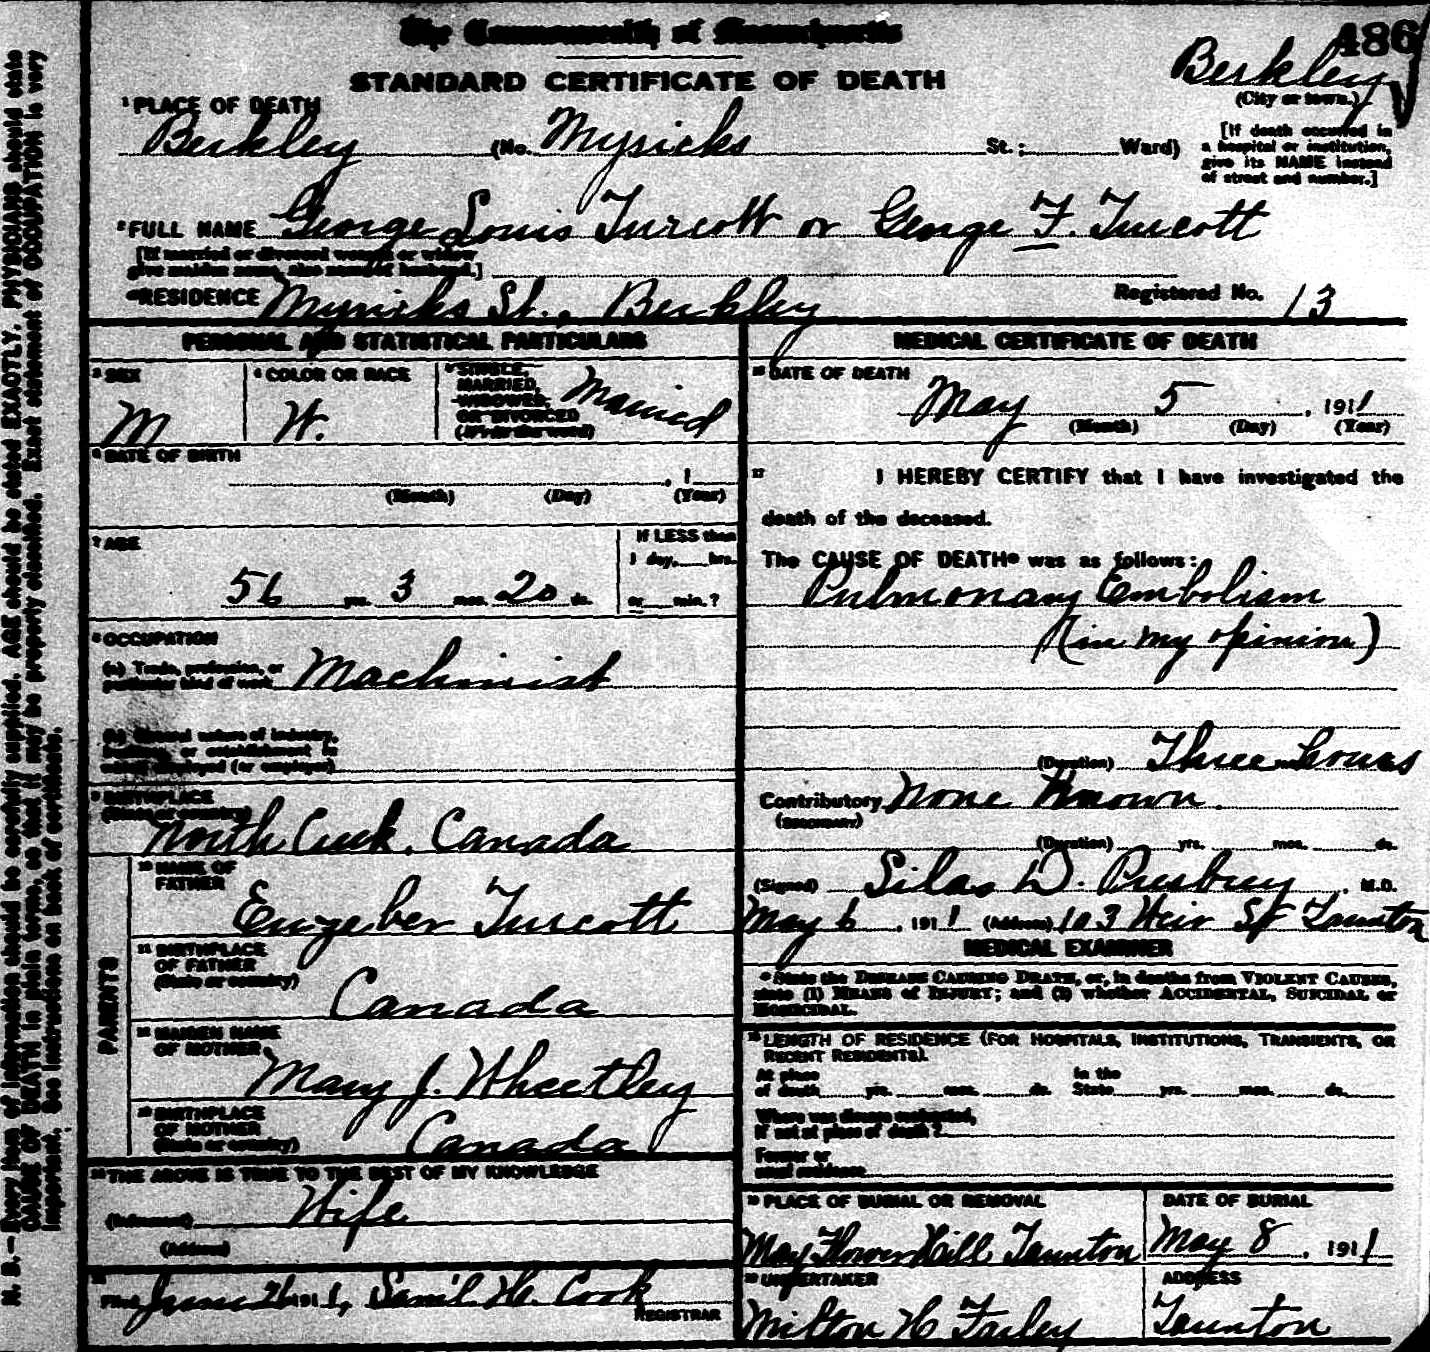 The Commonwealth of Massachusetts
486
STANDARD CERTIFICATE OF DEATH
Berkley
(City or town.)
1 PLACE OF DEATH
Berkley (No. Myricks St.; Ward)
[If death occurred in
a hospital or institution,
give its NAME instead
of street and number.]
2 FULL NAME George Louis Turcott or George F. Turcott
[If married or divorced woman or widow
give maiden name, also name of husband.]
RESIDENCE Myricks St., Berkley
Registered No. 13
PERSONAL AND STATISTICAL PARTICULARS
3 SEX
M
4 COLOR OR RACE
W.
5 SINGLE,
MARRIED,
WIDOWED,
OR DIVORCED
(Write the word)
Married
6 DATE OF BIRTH
, 1
(Month) (Day) (Year)
7 AGE
56 yrs. 3 mos. 20 ds.
If LESS than
1 day, hrs.
or min.?
8 OCCUPATION
(a) Trade, profession, or
particular kind of work Machinist
(b) General nature of industry,
business, or establishment in
which employed (or employer)
9 BIRTHPLACE
(State or country)
North Canada
10 NAME OF
FATHER
Turcott
11 BIRTHPLACE
OF FATHER
(State or country)
Canada
12 MAIDEN NAME
OF MOTHER
Mary J. Wheetley
13 BIRTHPLACE
OF MOTHER
(State or country)
Canada
PARENTS
14 THE ABOVE IS TRUE TO THE BEST OF MY KNOWLEDGE
(Informant) Wife
(Address)
15
Filed June 26 1911, Saml. H. Cook
REGISTRAR
MEDICAL CERTIFICATE OF DEATH
16 DATE OF DEATH
May 5, 1911
(Month) (Day) (Year)
17 I HEREBY CERTIFY that I have investigated the
death of the deceased.
The CAUSE OF DEATH* was as follows:
Pulmonary Embolism
(in my opinion)
(Duration) Three hours
Contributory None Known.
(SECONDARY)
(Duration) yrs. mos. ds.
(Signed) Silas D. Presbrey, M.D.
May 6, 1911 (Address) 103 Weir St Taunton
MEDICAL EXAMINER
* State the DISEASE CAUSING DEATH, or, in deaths from VIOLENT CAUSES,
state (1) MEANS of INJURY; and (2) whether ACCIDENTAL, SUICIDAL or
HOMICIDAL.
18 LENGTH OF RESIDENCE (FOR HOSPITALS, INSTITUTIONS, TRANSIENTS, OR
RECENT RESIDENTS).
At place
of death yrs. mos. ds.
In the
State yrs. mos. ds.
Where was disease contracted,
if not at place of death?
Former or
usual residence
19 PLACE OF BURIAL OR REMOVAL
May Flower Hill Taunton
DATE OF BURIAL
May 8, 1911
20 UNDERTAKER
Milton H Farley
ADDRESS
Taunton
N. B.—Every item of information should be carefully supplied. AGE should be stated EXACTLY. PHYSICIANS should state
CAUSE OF DEATH in plain terms, so that it may be properly classified. Exact statement of OCCUPATION is very
important. See instructions on back of certificate.